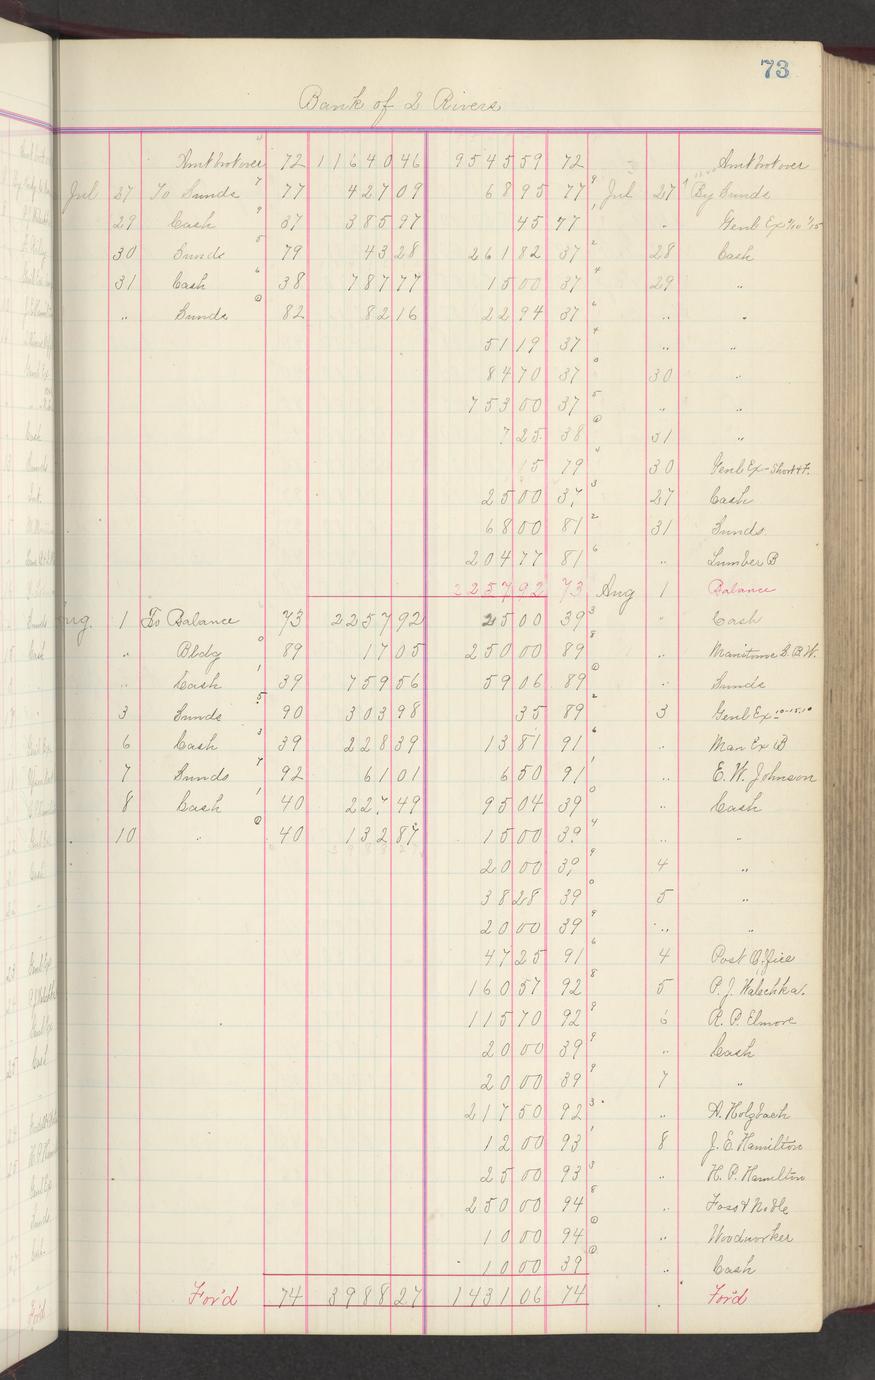 73
Bank of 2 Rivers
Amt brot over 72 11640 46 9545 59 72 Amt brot over
Jul 27 To Sunds 77 427 09 68 95 77 Jul 27 By Sunds
29 Cash 37 385 97 45 77 " Genl Ex
30 Sunds 79 43 28 261 82 37 28 Cash
31 Cash 38 787 77 15 00 37 29 "
" Sunds 82 82 16 22 94 37 " "
51 19 37 " "
84 70 37 30 "
753 00 37 " "
7 25 38 31 "
15 79 30 Genl Ex - Short & F.
25 00 37 27 Cash
68 00 81 31 Sunds
204 77 81 " Lumber B
2257 92 73 Aug 1 Balance
Aug. 1 To Balance 73 2257 92 25 00 39 " Cash
" Bldg 89 17 05 250 00 89 " Manitowoc S. B W.
" Cash 39 759 56 59 06 89 " Sunds
3 Sunds 90 303 98 35 89 3 Genl Ex
6 Cash 39 228 39 13 81 91 " Man Ex B
7 Sunds 92 61 01 6 50 91 " E. W. Johnson
8 Cash 40 227 49 95 04 39 " Cash
10 " 40 132 87 15 00 39 " "
20 00 39 4 "
38 28 39 5 "
20 00 39 " "
47 25 91 4 Post Office
160 57 92 5 P. J. Halschka.
115 70 92 6 R. P. Elmore
20 00 39 " Cash
20 00 39 7 "
217 50 92 " A. Holzbach
12 00 93 8 J. E. Hamilton
25 00 93 " H. P. Hamilton
250 00 94 " Foss & Noble
10 00 94 " Woodworker
10 00 39 " Cash
For'd 74 3988 27 1431 06 74 For'd